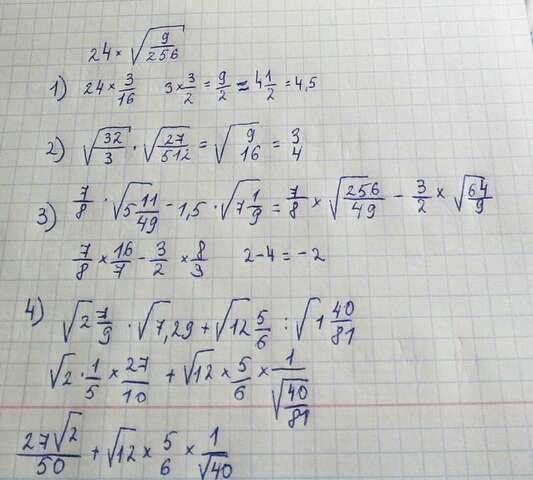 24 × √(9/256)
1) 24 × 3/16   3 × 3/2 = 9/2 = 4 1/2 = 4,5
2) √(32/3) · √(27/512) = √(9/16) = 3/4
3) 7/8 · √(5 11/49) - 1,5 · √(7 1/9) = 7/8 × √(256/49) - 3/2 × √(64/9)
7/8 × 16/7 - 3/2 × 8/3   2-4 = -2
4) √(2 7/9) · √(7,29) + √(12 5/6) : √(1 40/81)
√2 · 1/5 × 27/10 + √12 × 5/6 × 1/√(40/81)
27√2/50 + √12 × 5/6 × 1/√40